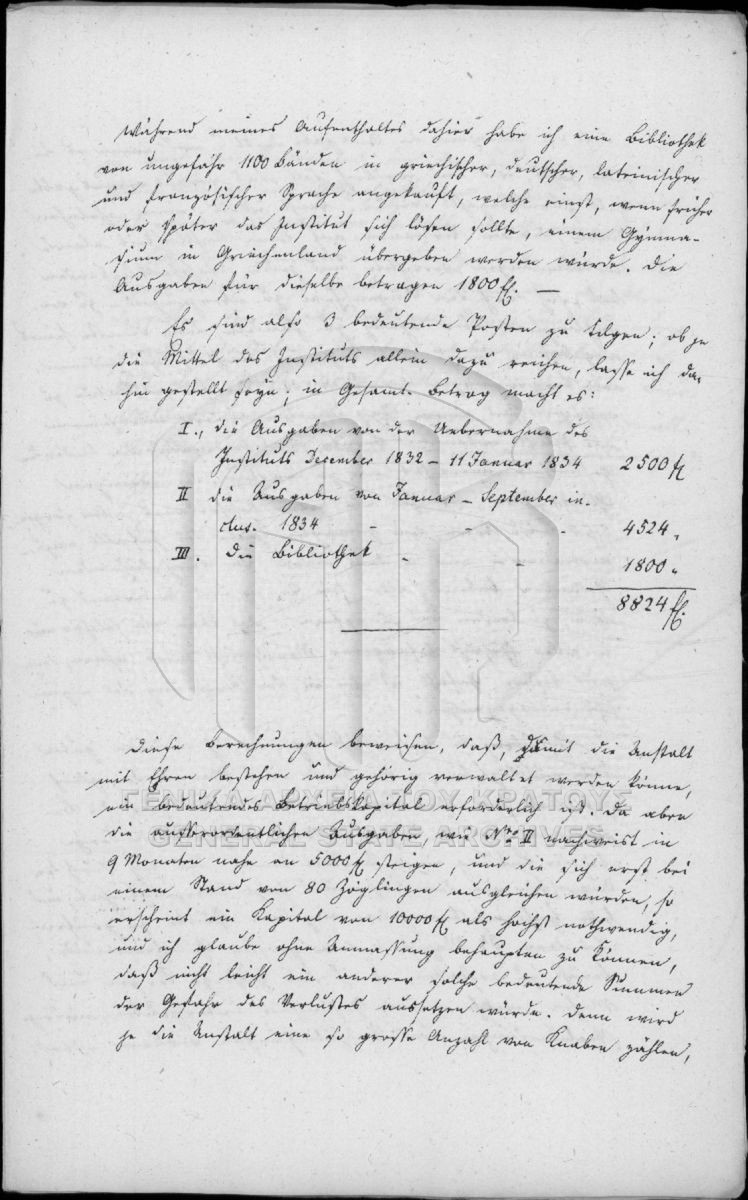 Während meines Aufenthaltes dahier habe ich eine Bibliothek
von ungefähr 1100 Bänden in griechischer, deutscher, lateinischer
und französischer Sprache angekauft, welche einst, wenn früher
oder später das Institut sich lösen sollte, einem Gymna-
sium in Griechenland übergeben werden würde. Die
Ausgaben für dieselbe betragen 1800 fl. —
Es sind also 3 bedeutende Posten zu tilgen; ob je
die Mittel des Instituts allein dazu reichen, lasse ich da-
hin gestellt seyn; in Gesamt-Betrag macht es:
I., die Ausgaben von der Uebernahme des
Instituts December 1832 – 11 Januar 1834 2500 fl
II die Ausgaben von Januar – September in-
clus. 1834 - - - 4524 „
III. die Bibliothek - - 1800 „
8824 fl.
Diese Berechnungen beweisen, daß, damit die Anstalt
mit Ehren bestehen und gehörig verwaltet werden könne,
ein bedeutendes Betriebskapital erforderlich ist. Da aber
die ausserordentlichen Ausgaben, wie Nro II nachweist in
9 Monaten nahe an 5000 fl steigen, und die sich erst bei
einem Stand von 80 Zöglingen ausgleichen würden, so
erscheint ein Kapital von 10000 fl als höchst nothwendig,
und ich glaube ohne Anmassung behaupten zu können,
daß nicht leicht ein anderer solche bedeutende Summen
der Gefahr des Verlustes aussetzen würde. Denn wird
je die Anstalt eine so grosse Anzahl von Knaben zählen,
ΓΕΝΙΚΑ ΑΡΧΕΙΑ ΤΟΥ ΚΡΑΤΟΥΣ
GENERAL STATE ARCHIVES